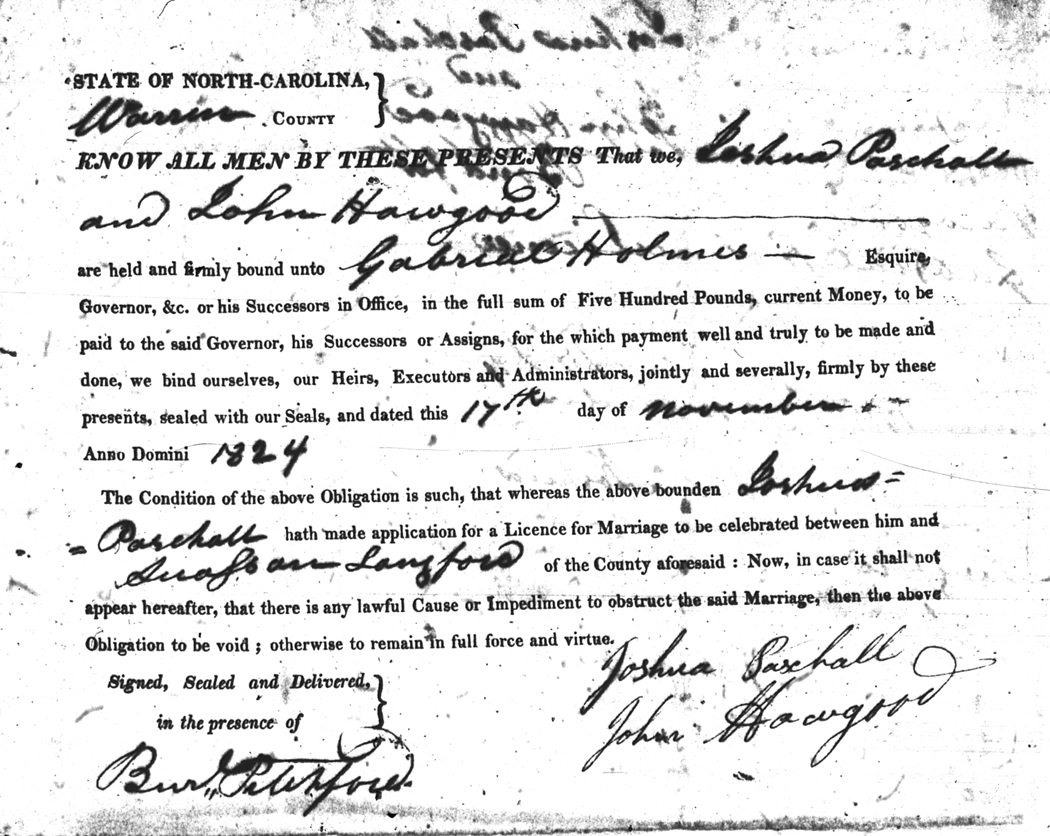 STATE OF NORTH-CAROLINA, }
Warren COUNTY
KNOW ALL MEN BY THESE PRESENTS That we, Joshua Paschall
and John Hawgood
are held and firmly bound unto Gabriel Holmes — Esquire,
Governor, &c. or his Successors in Office, in the full sum of Five Hundred Pounds, current Money, to be
paid to the said Governor, his Successors or Assigns, for the which payment well and truly to be made and
done, we bind ourselves, our Heirs, Executors and Administrators, jointly and severally, firmly by these
presents, sealed with our Seals, and dated this 17th day of November
Anno Domini 1824
The Condition of the above Obligation is such, that whereas the above bounden Joshua =
= Paschall hath made application for a Licence for Marriage to be celebrated between him and
Langford of the County aforesaid : Now, in case it shall not
appear hereafter, that there is any lawful Cause or Impediment to obstruct the said Marriage, then the above
Obligation to be void ; otherwise to remain in full force and virtue.
Joshua Paschall
Signed, Sealed and Delivered, }
in the presence of
John Hawgood
Burl. Pitchford.